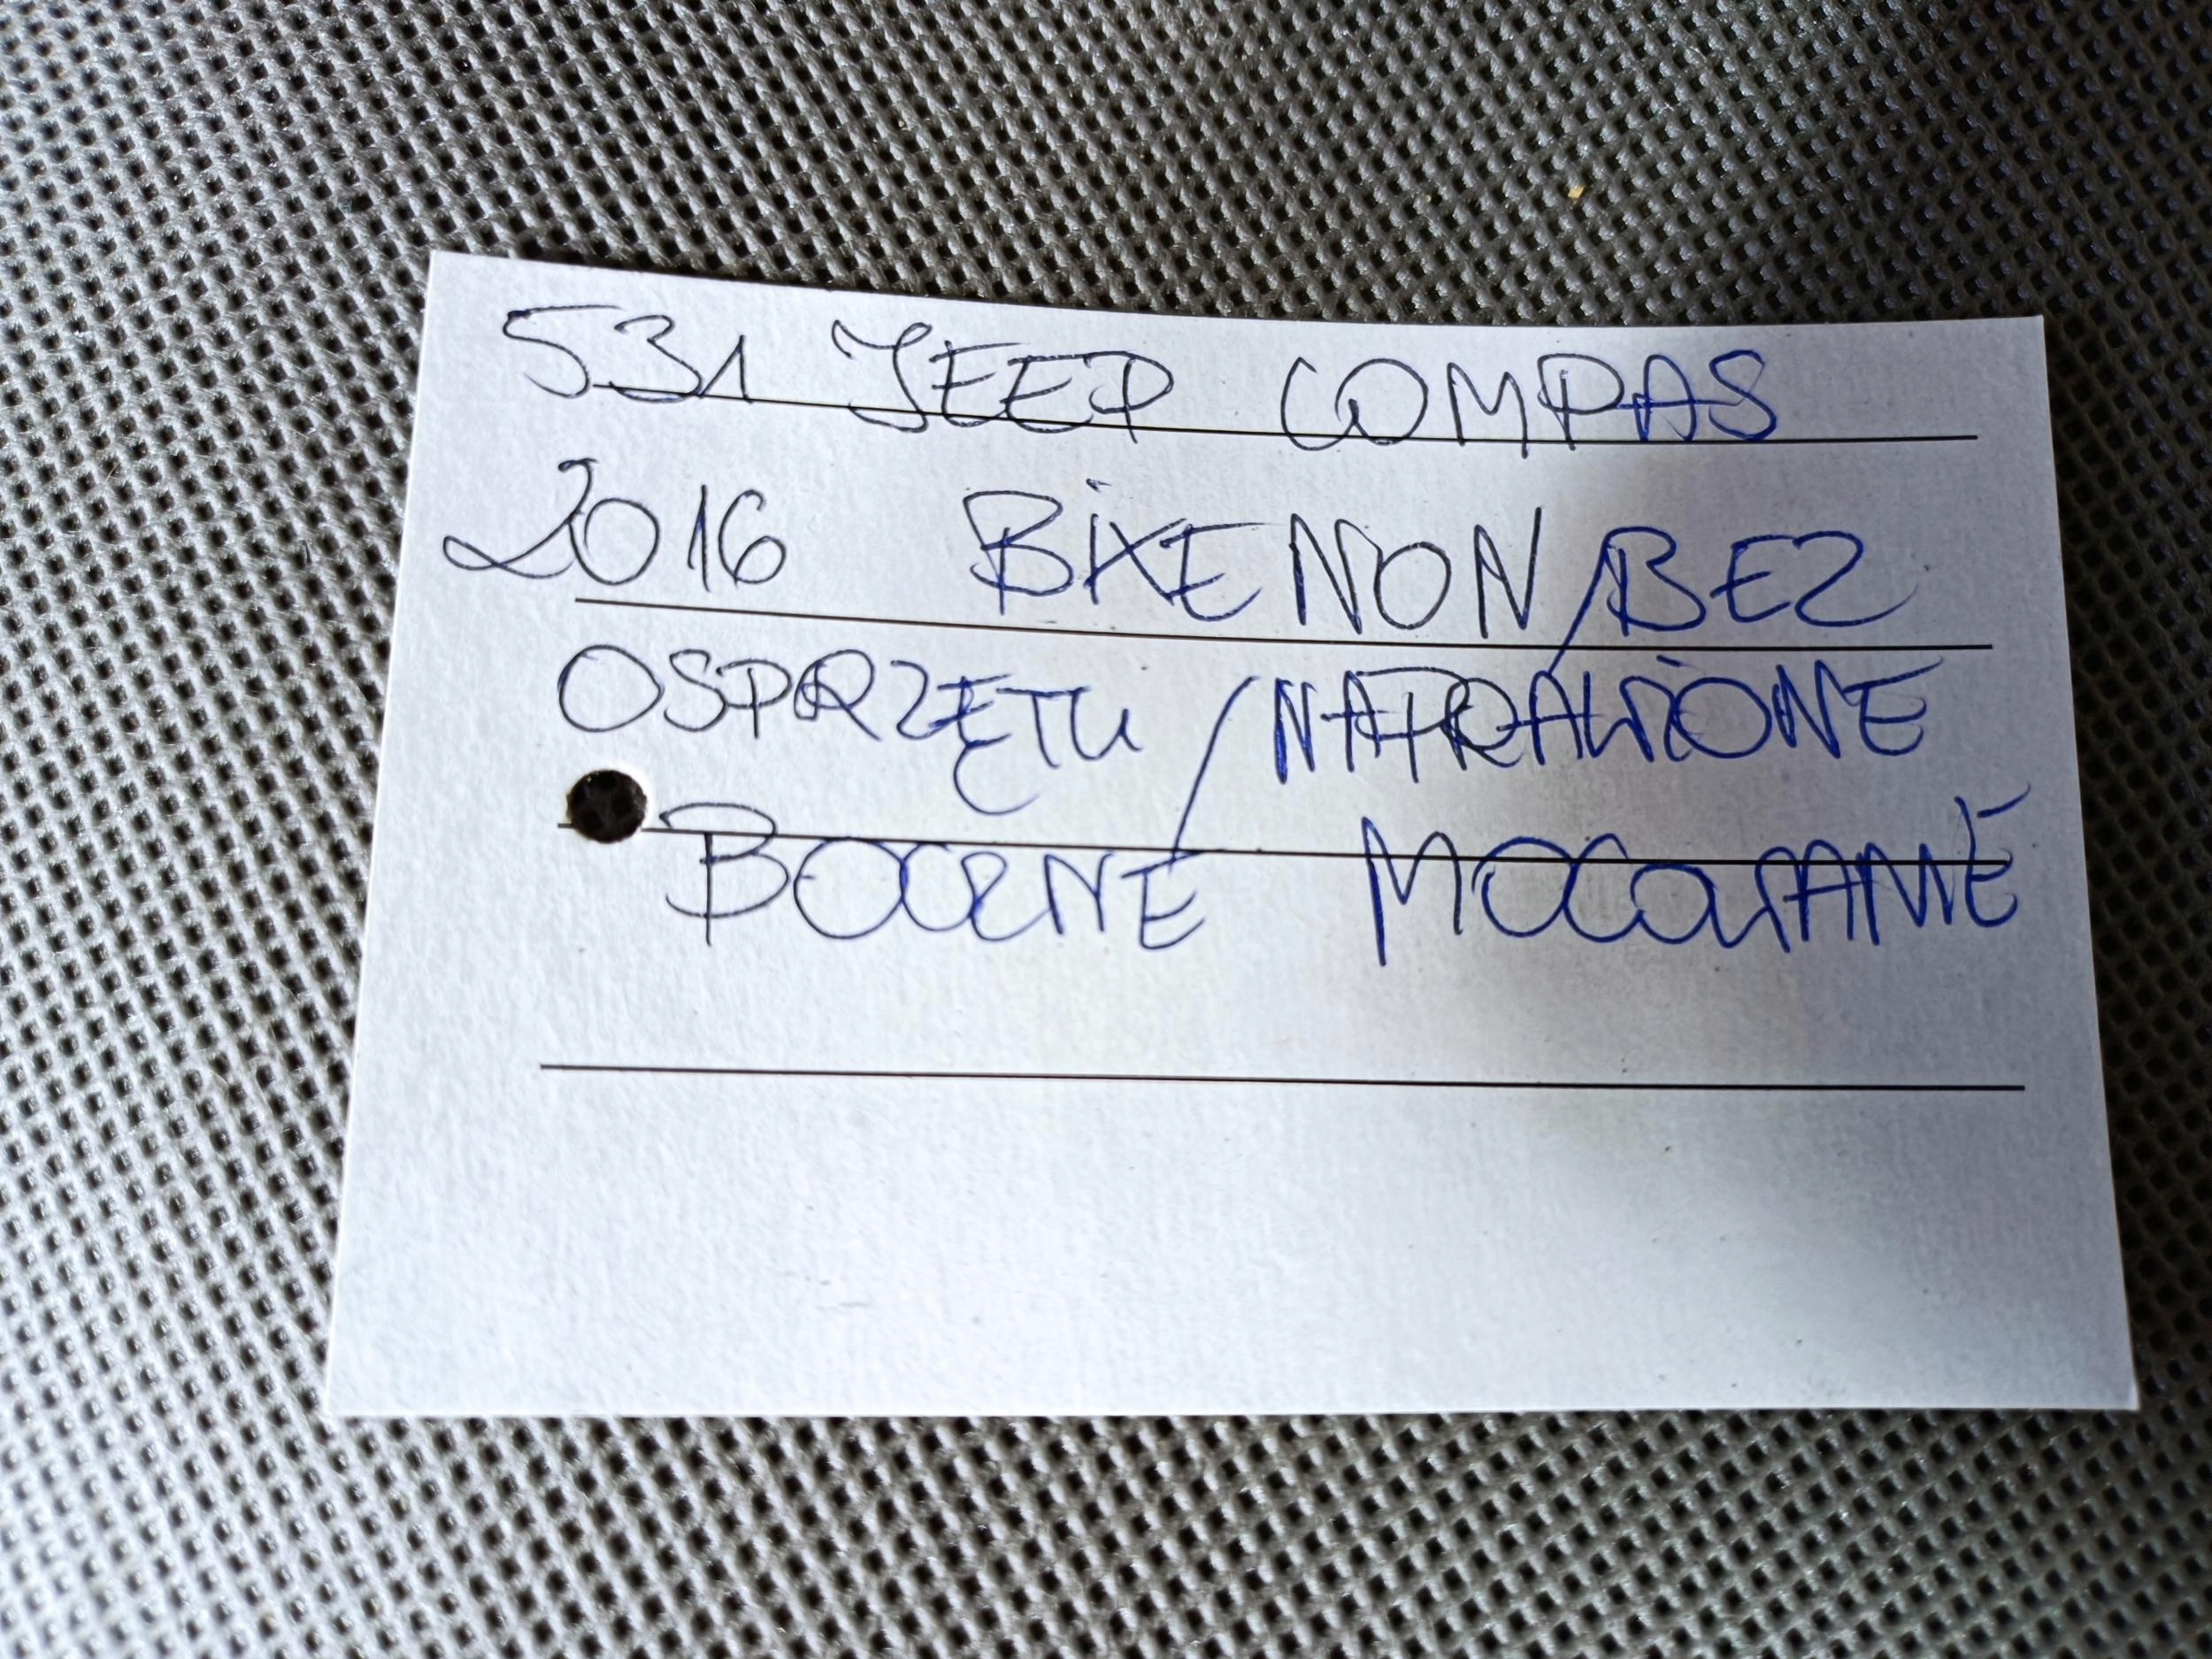 531 JEEP COMPAS
2016 BiXENON/BEZ
OSPRZĘTU/NAPRAWIONE
BOCZNE MOCOWANIE